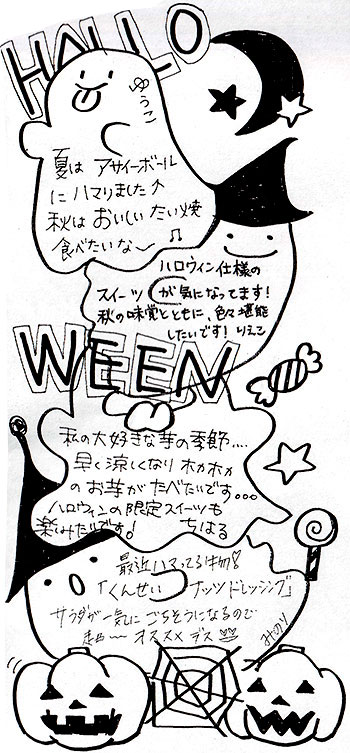 HALLO
ゆうこ
夏は アサイーボール
に ハマりました↑
秋は おいしい たい焼
食べたいな〜♫
ハロウィン仕様の
スイーツが気になってます!
秋の味覚とともに、色々堪能
したいです! りえこ
WEEN
私の大好きな芋の季節....
早く涼しくなり ホカホカ
のお芋が たべたいです...
ハロウィンの限定スイーツも
楽しみたいです! ちはる
最近ハマってる物♡
「くんせい ナッツドレッシング」
サラダが一気に ごちそうになるので
超〜 オススメ デス
みのり